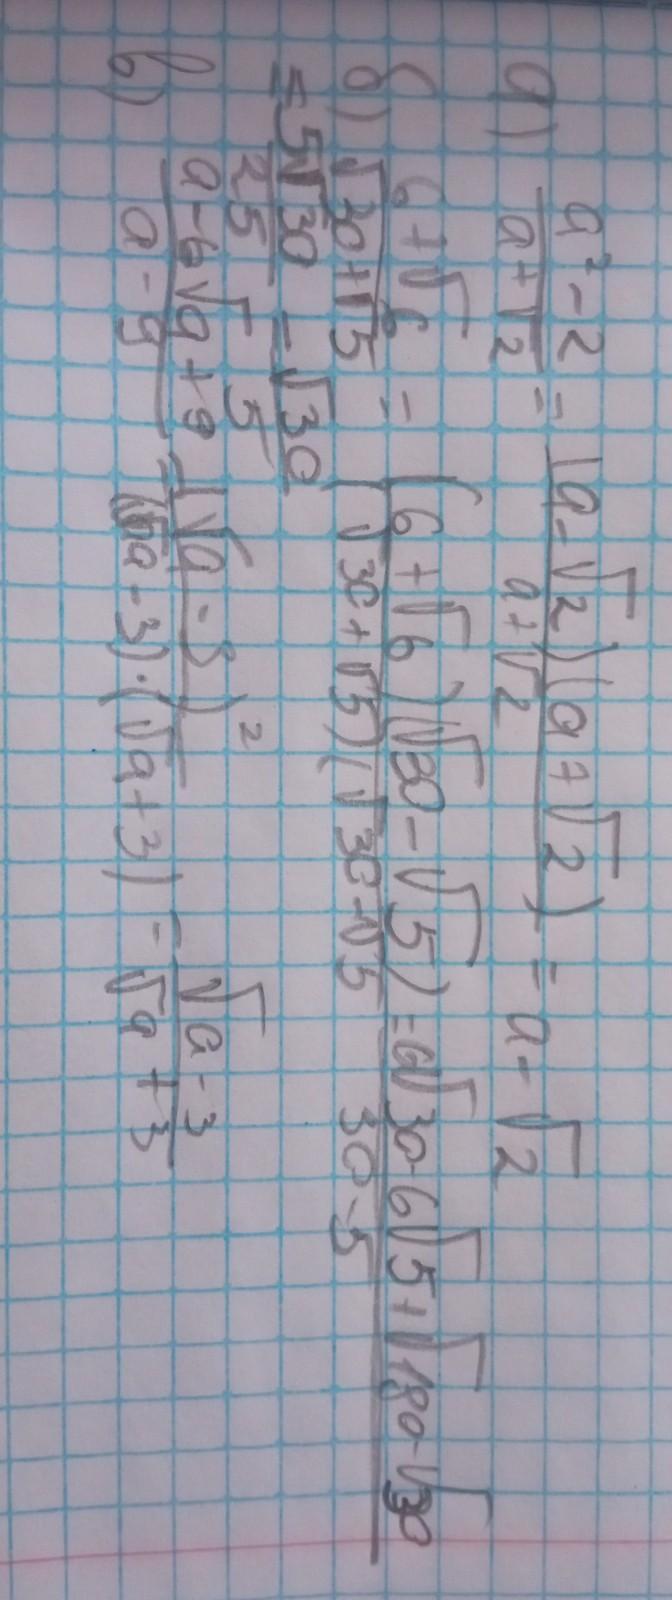 а) (a²-2)/(a+√2) = (a-√2)(a+√2)/(a+√2) = a-√2
б) (6+√6)/(√30+√5) = (6+√6)(√30-√5)/(√30+√5)(√30-√5 = (6√30-6√5+√180-√30)/(30-5)
= 5√30/25 = √30/5
в) (a-6√a+9)/(a-9) = (√a-3)²/(√a-3)·(√a+3) = (√a-3)/(√a+3)